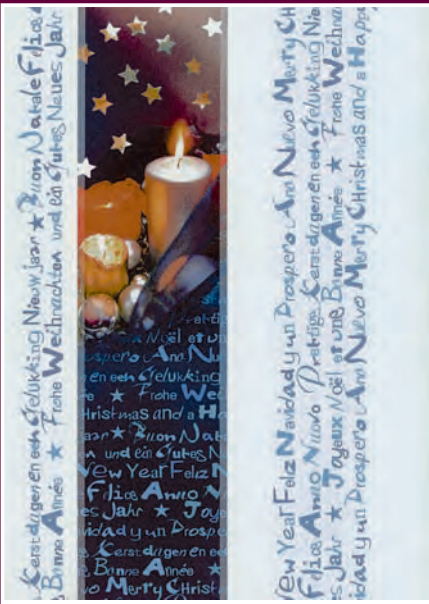 Kerstdagen en een Gelukking Nieuwjaar ★ Buon Natale Felice A
Bonne Année ★ Frohe Weihnachten und ein Gutes Neues Jahr
Prettig
Noël et un
ospero Ano Nu
en een Gelukking
★ Frohe We
Hristmas and a H
aar ★ Buon Nat
n und ein Gutes N
New Year Feliz N
Filice Anno N
es Jahr ★ Joye
vidad y un Prospe
Kerstdagen en ee
Bonne Année ★
vo Merry Christ
New Year Feliz Navidad y un Prospero Ano Nuevo Merry CH
Filice Anno Nuovo Prettige Kerstdagen en een Gelukking Nie
s Jahr ★ Joyeux Noël et une Bonne Année ★ Frohe Weihna
idad y un Prospero Ano Nuevo Merry CHristmas and a Happ